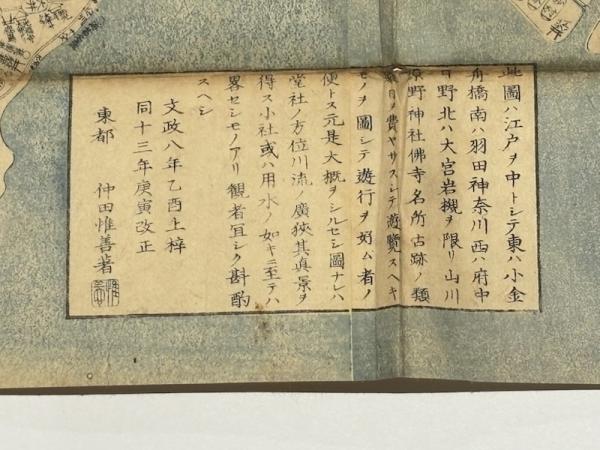 此圖ハ江戸ヲ中トシテ東ハ小金
舟橋南ハ羽田神奈川西ハ府中
日野北ハ大宮岩槻ヲ限リ山川
原野神社佛寺名所古跡ノ類
日ヲ費ヤサスシテ遊覽スヘキ
モノヲ圖シテ遊行ヲ好ム者ノ
便トス元是大概ヲシルセシ圖ナレハ
堂社ノ方位川流ノ廣狹其真景ヲ
得ス小社或ハ用水ノ如キニ至テハ
畧セシモノアリ観者宜シク斟酌
スヘシ
文政八年乙酉上梓
同十三年庚寅改正
東都 仲田惟善著